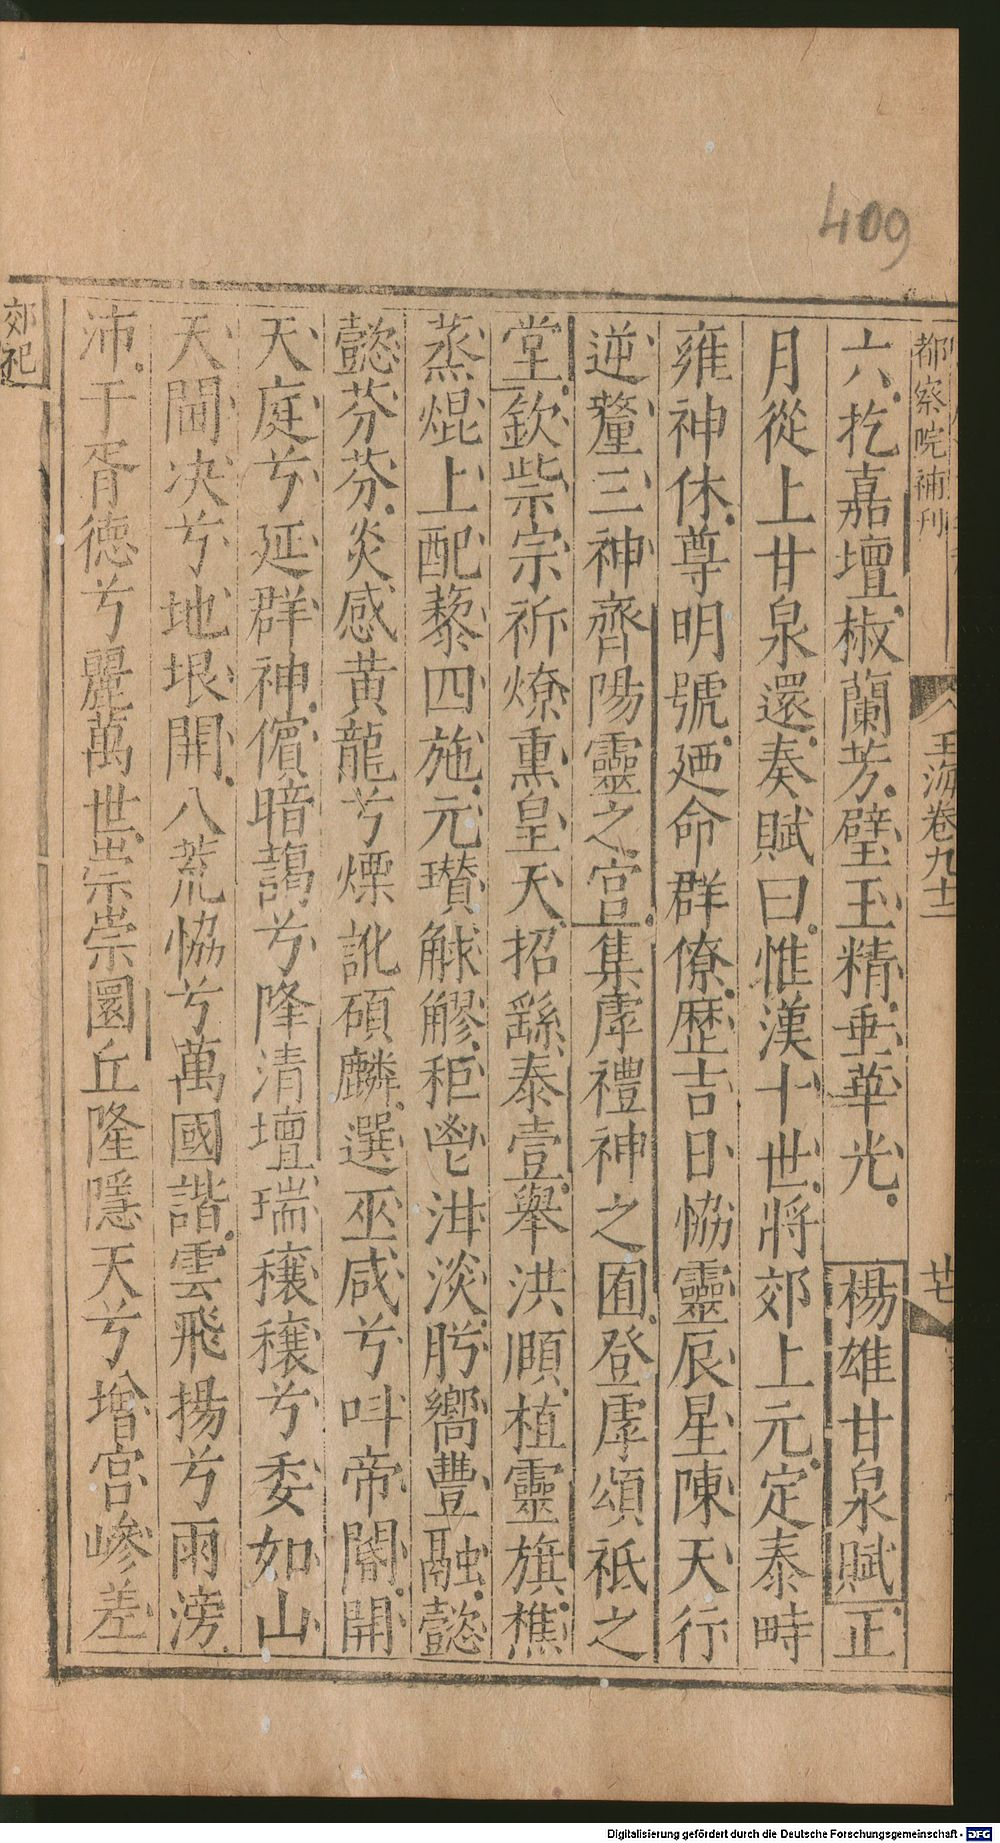 409
都察院補刊
玉海卷九十二
廿七
六扢嘉壇椒蘭芳璧玉精垂華光 楊雄甘泉賦正
月從上甘泉還奏賦曰惟漢十世將郊上元定泰畤
雍神休尊明號廼命群僚歷吉日恊靈辰星陳天行
逆釐三神齊陽靈之宫集虖禮神之囿登虖頌祇之
堂欽祡宗祈燎熏皇天招繇泰壹舉洪頤植靈旗樵
蒸焜上配藜四施元瓚觩䚧秬鬯泔淡肸嚮豐融懿
懿芬芬炎感黄龍兮熛訛碩麟選巫咸兮叫帝閽開
天庭兮延群神儐暗藹兮降清壇瑞穰穰兮委如山
天閫决兮地垠開八荒恊兮萬國諧雲飛揚兮雨滂
沛于胥德兮麗萬世崇崇圜丘隆隱天兮增宫嵾差
郊祀
Digitalisierung gefördert durch die Deutsche Forschungsgemeinschaft - DFG